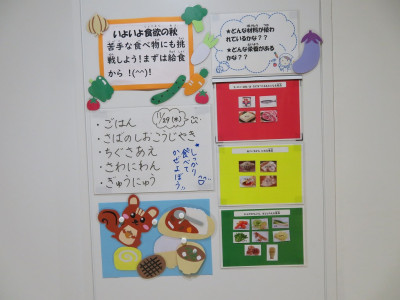 いよいよ食欲の秋
苦手な食べ物にも挑
戦しよう！まずは給食
から !(^^)!
★どんな材料が使わ
れているかな？？
★どんな栄養がある
かな？？
11/29(木)
・ごはん
・さばのしおこうじやき
・ちぐさあえ
・さわにわん
・ぎゅうにゅう
しっかり
食べて
かぜよぼう